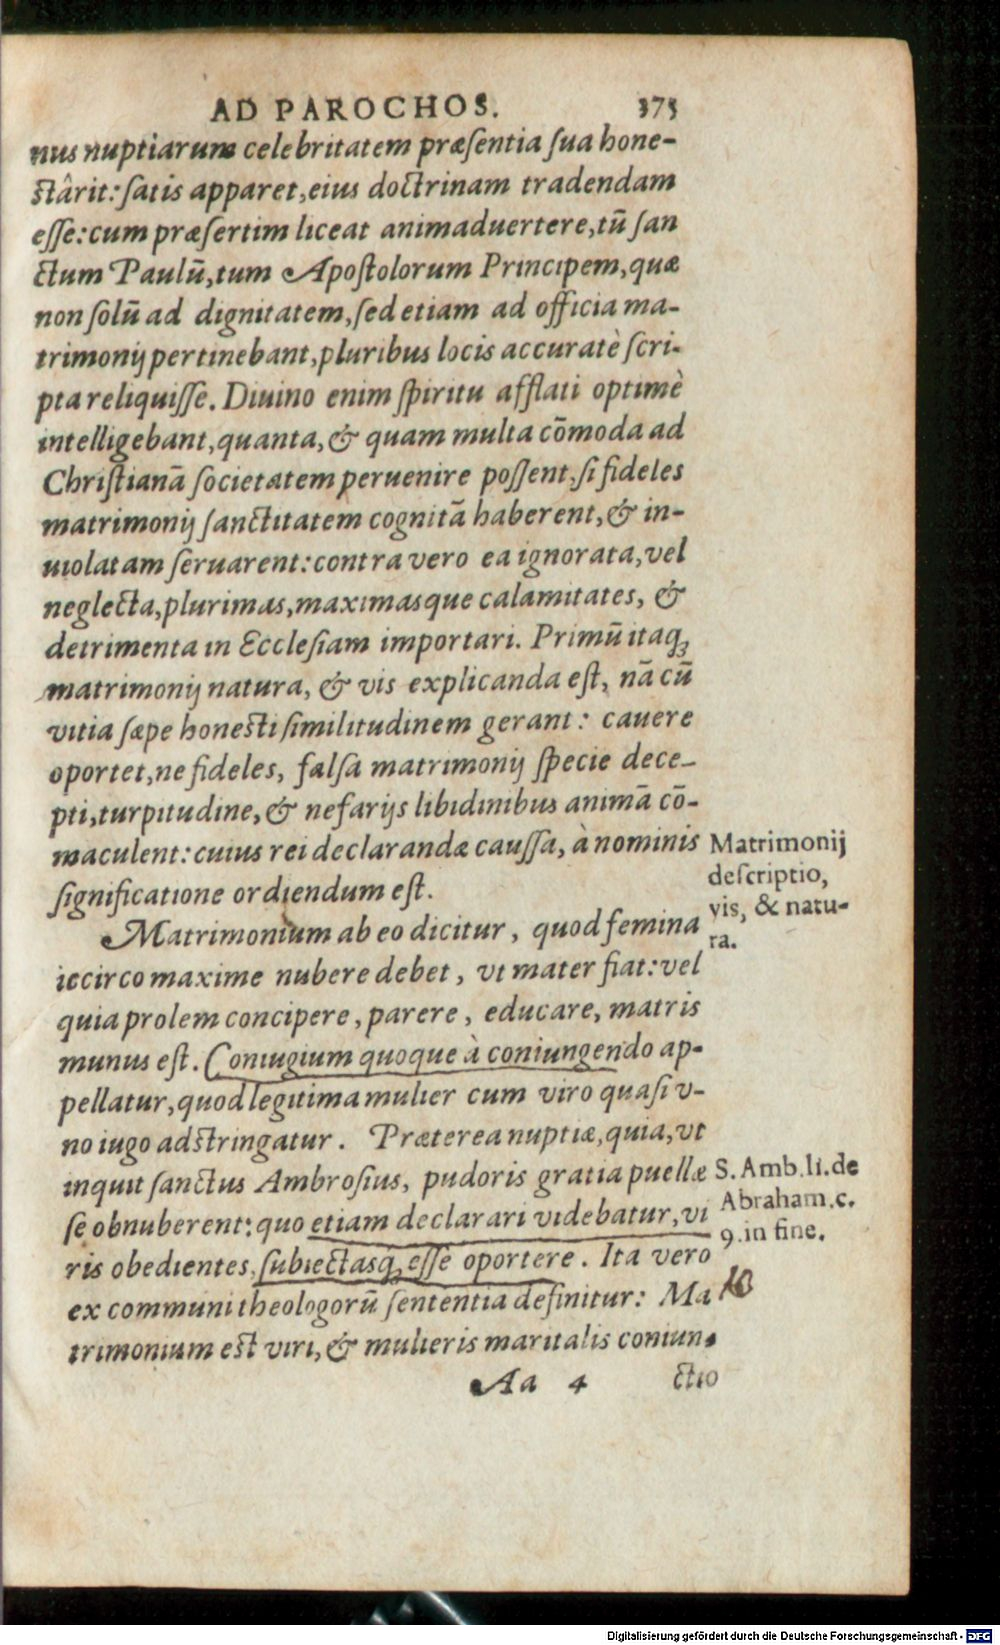 AD PAROCHOS. 375
nus nuptiarum celebritatem præſentia ſua hone-
ſtârit: ſatis apparet, eius doctrinam tradendam
eſſe: cum præſertim liceat animaduertere, tū ſan
ctum Paulū, tum Apoſtolorum Principem, quæ
non ſolū ad dignitatem, ſed etiam ad officia ma-
trimonij pertinebant, pluribus locis accuratè ſcri-
pta reliquiſſe. Diuino enim ſpiritu afflati optimè
intelligebant, quanta, & quam multa cōmoda ad
Chriſtianā ſocietatem peruenire poſſent, ſi fideles
matrimonij ſanctitatem cognitā haberent, & in-
uiolatam ſeruarent: contra vero ea ignorata, vel
neglecta, plurimas, maximasque calamitates, &
detrimenta in Eccleſiam importari. Primū itaq;
matrimonij natura, & vis explicanda eſt, nā cū
vitia ſæpe honeſti ſimilitudinem gerant: cauere
oportet, ne fideles, falſa matrimonij ſpecie dece-
pti, turpitudine, & nefarijs libidinibus animā cō-
maculent: cuius rei declarandæ cauſſa, à nominis
ſignificatione ordiendum eſt.
Matrimonij
deſcriptio,
vis, & natu-
ra.
Matrimonium ab eo dicitur, quod femina
iccirco maxime nubere debet, vt mater fiat: vel
quia prolem concipere, parere, educare, matris
munus eſt. Coniugium quoque à coniungendo ap-
pellatur, quod legitima mulier cum viro quaſi v-
no iugo adſtringatur. Præterea nuptiæ, quia, vt
inquit ſanctus Ambroſius, pudoris gratia puellæ
ſe obnuberent: quo etiam declarari videbatur, vi
ris obedientes, ſubiectasq; eſſe oportere. Ita vero
ex communi theologorū ſententia definitur: Ma
trimonium eſt viri, & mulieris maritalis coniun-
S. Amb. li. de
Abraham. c.
9. in fine.
Aa 4 ctio